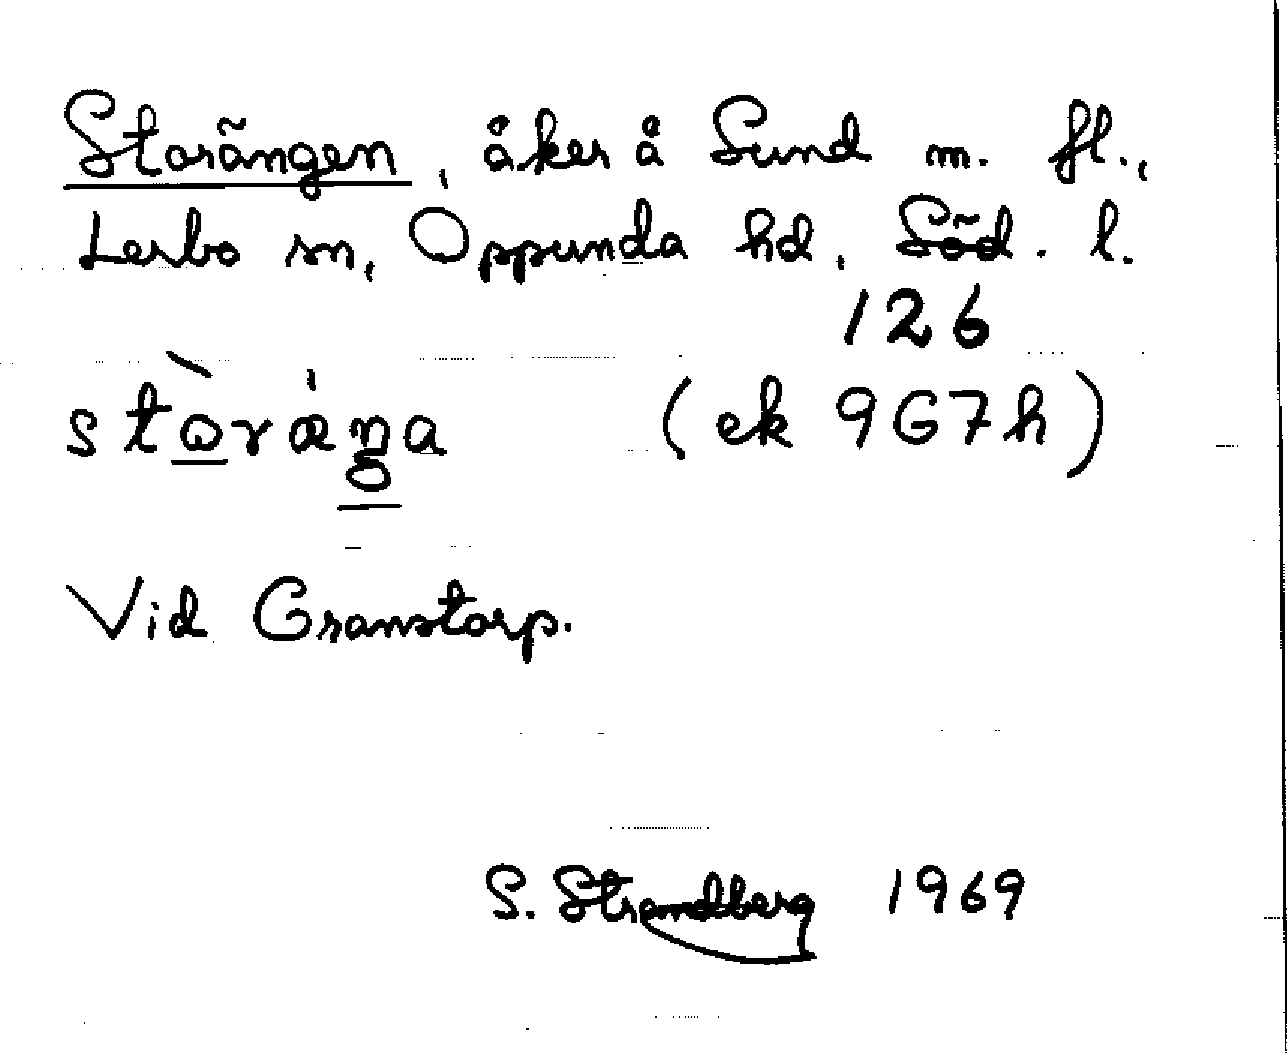 Storängen, åker å Sund m. fl.,
Lerbo sn, Oppunda hd, Söd. l.
126
stòræ̍ŋa (ek 9G7h)
Vid Granstorp.
S. Strandberg 1969